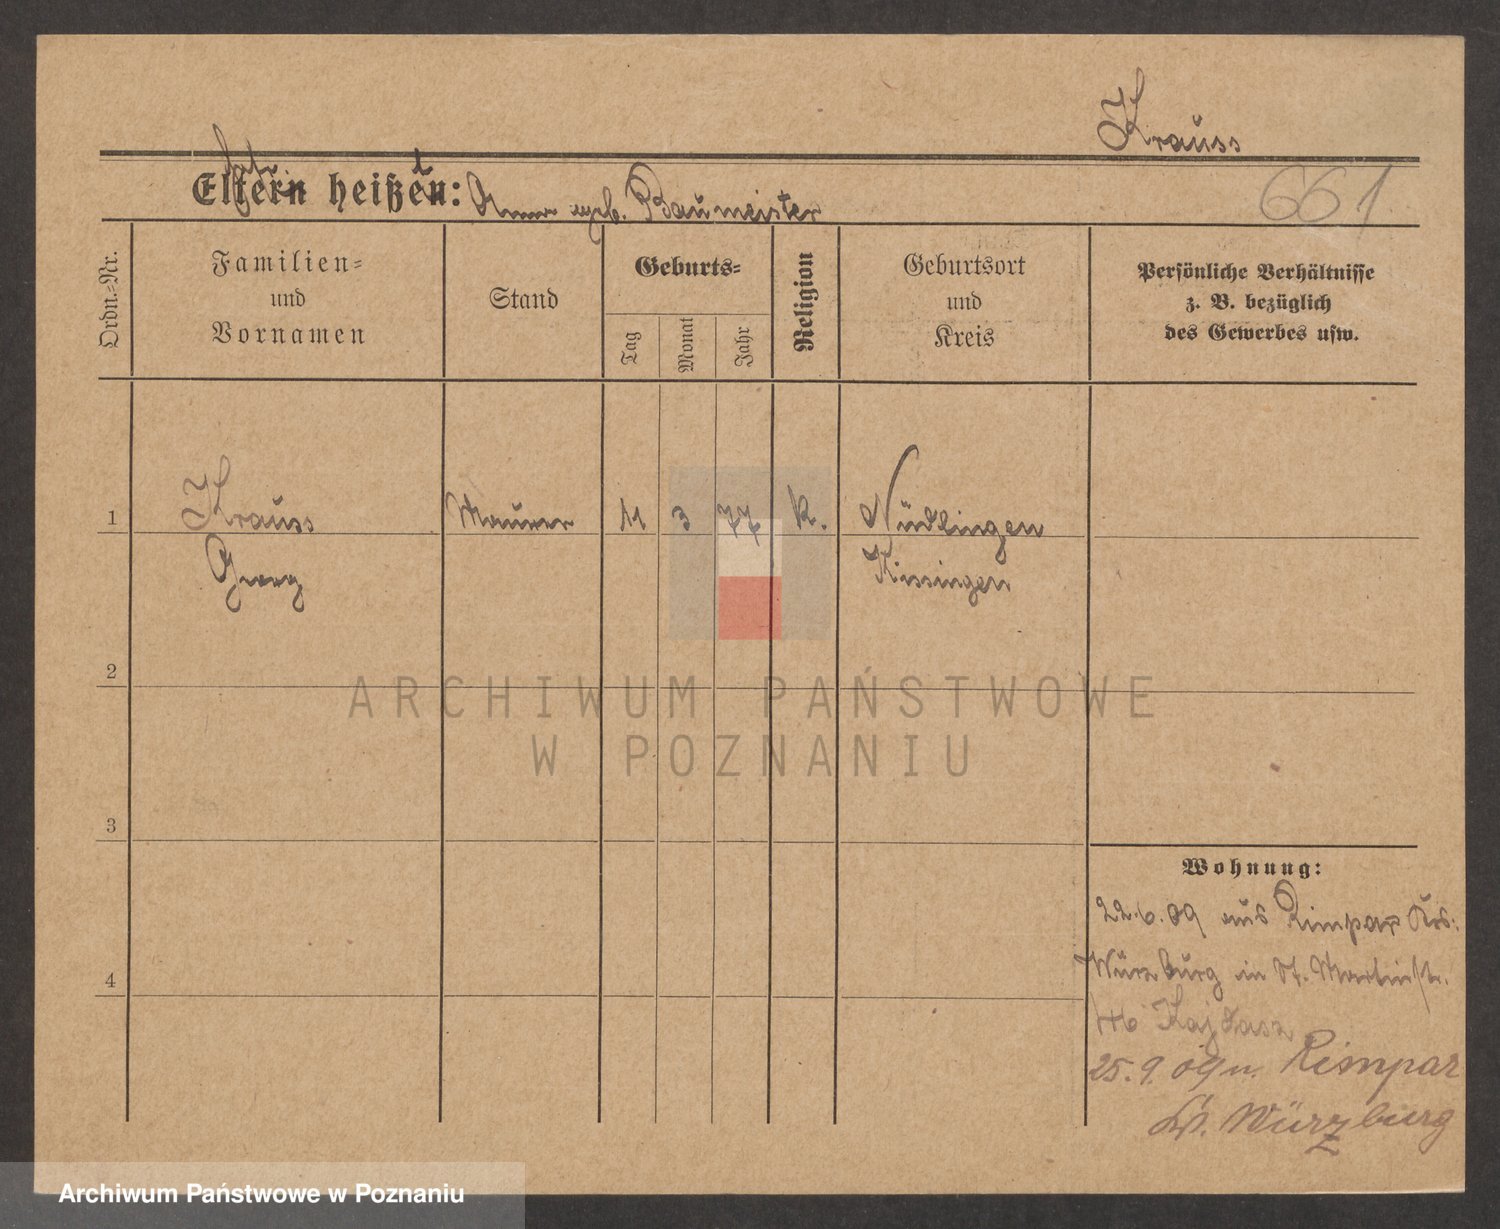 Krauss
661
Eltern heißen: Anna geb. Baumeister
Ordn.-Nr.
Familien-
und
Vornamen
Stand
Geburts-
Tag
Monat
Jahr
Religion
Geburtsort
und
Kreis
Persönliche Verhältnisse
z. B. bezüglich
des Gewerbes usw.
1 Krauss Maurer 11 3 77 k. Nüdlingen
Georg Kissingen
2
ARCHIWUM PAŃSTWOWE
W POZNANIU
3
Wohnung:
22.6.09 aus Rimpar Krs:
Würzburg in St. Martinstr.
4
46 Kajdasz
25.9.09 n. Rimpar
Kr. Würzburg
Archiwum Państwowe w Poznaniu